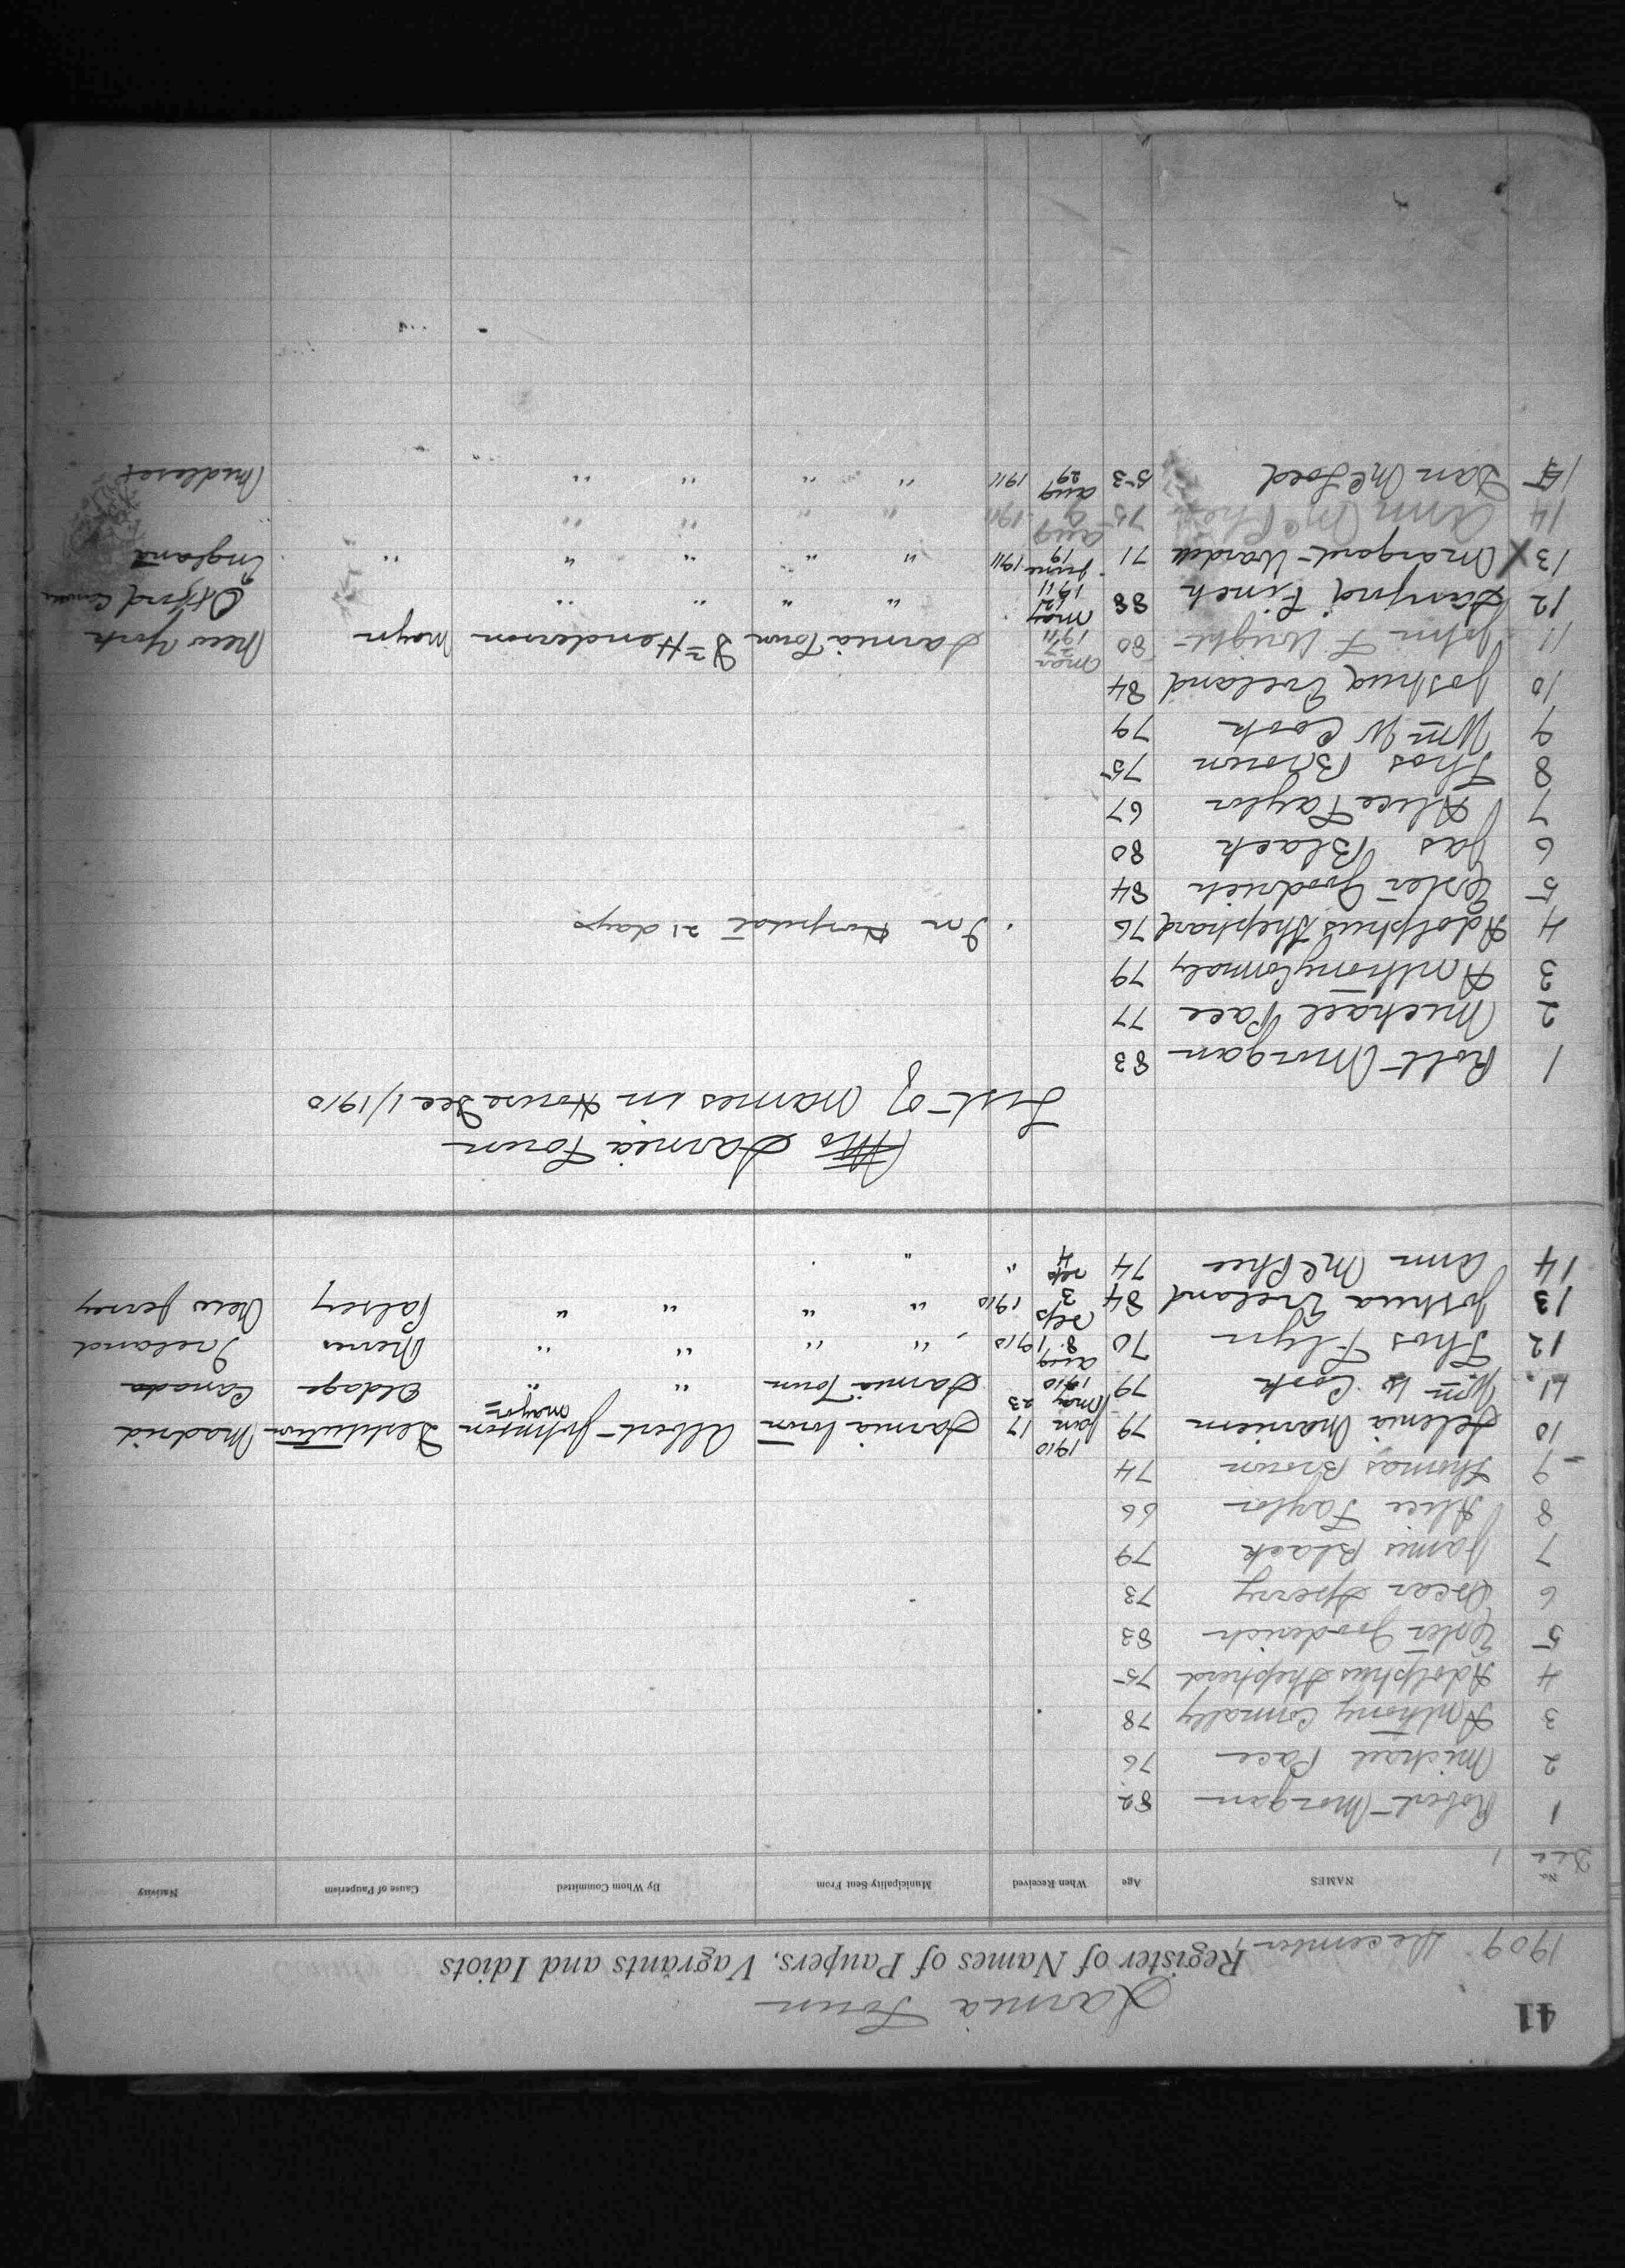 41
Sarnia Town
1909 December 1 Register of Names of Paupers, Vagrants and Idiots
No. NAMES Age When Received Municipality Sent From By Whom Committed Cause of Pauperism Nativity
Dec 1
1 Robert Morgan 82
2 Michael Pace 76
3 Anthony Connally 78
4 Adolphus Shepherd 75
5 Ester Goodrich 83
6 Oscar Sperry 73
7 James Black 79
8 Alice Taylor 66
9 Thomas Brown 74
10 Selenia 79 1910 Jan 17 Sarnia Town Albert Johnson Mayor Destitution Madrid
11 Wm W Cook 79 May 23 1910 Sarnia Town " " Oldage Canada
12 Thos Flyn 70 Aug 8 1910 " " " " Nerves Ireland
13 Joshua Ireland 84 Sep 3 1910 " " " " Palsey New Jersey
14 Ann McPhee 74 Sep 4 " "
Sarnia Town
List of Names in House Dec 1/1910
1 Robt Morgan 83
2 Michael Pace 77
3 Anthony Connaly 79
4 Adolphus Shephard 76 In Hospital 21 days
5 Ester Goodrich 84
6 Jas Black 80
7 Alice Taylor 67
8 Thos. Brown 75
9 Wm W Cook 79
10 Joshua Ireland 84
11 John F Wright 80 Mar 27 1911 Sarnia Town Dr Henderson Mayor New York
12 Finch 88 May 12 1911 " " " " " Oxford
13 Margaret Wardell 71 June 19 1911 " " " " " England
14 Ann McPhee 75 Aug 9 1911 " " " "
15 Dan McLoed 53 Aug 29 1911 " " " " " Midleset